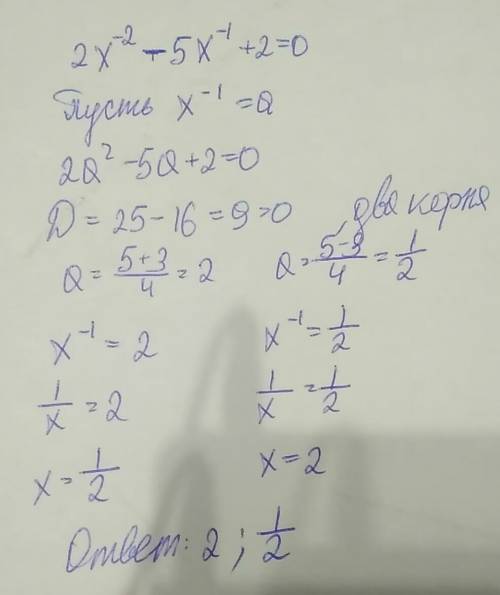 2x⁻² - 5x⁻¹ + 2 = 0
Пусть x⁻¹ = a
2a² - 5a + 2 = 0
D = 25 - 16 = 9 > 0, два корня
a = (5+3)/4 = 2    a = (5-3)/4 = 1/2
x⁻¹ = 2    x⁻¹ = 1/2
1/x = 2    1/x = 1/2
x = 1/2    x = 2
Ответ: 2 ; 1/2